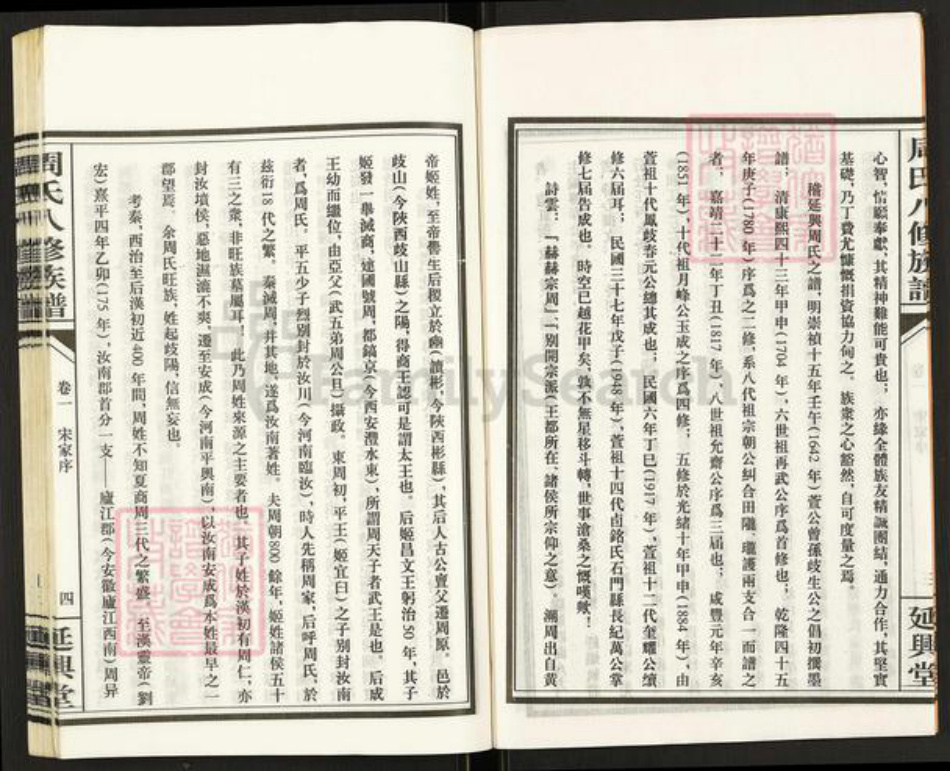 周氏八修族譜
延興堂
心智，情願奉獻，其精神難能可貴也；亦緣全體族友精誠團結，通力合作，其堅實
基礎，乃丁費尤慷慨捐資協力甸之。族衆之心豁然，自可度量之焉。
稽延興周氏之譜，明崇禎十五年壬午(1642年)萱公曾孫歧生公之倡初撰墨
譜；清康熙四十三年甲申(1704年)，六世祖再武公序爲首修也；乾隆四十五
年庚子(1780年)序爲之二修，系八代祖宗朝公糾合田隴、瓏護兩支合一而譜之
者，嘉靖二十二年丁丑(1817年)，八世祖允齋公序爲三届也；咸豐元年辛亥
(1851年)，十代祖月峰公玉成之序爲四修；五修於光緒十年甲申(1884年)，由
萱祖十代鳳歧春元公總其成也；民國六年丁巳(1917年)，萱祖十二代奎耀公續
修六届耳；民國三十七年戊子(1948年)，萱祖十四代卣銘氏石門縣長紀萬公掌
修七届告成也。時空已越花甲矣，孰不無星移斗轉，世事滄桑之慨嘆歟！
詩雲：「赫赫宗周」，「别開宗派(王都所在，諸侯所宗仰之意)。溯周出自黄
帝姬姓，至帝嚳生后稷立於豳(讀彬，今陝西彬縣)，其后人古公亶父遷周原。邑於
歧山(今陝西歧山縣)之陽，得商王認可是謂太王也。后姬昌文王躬治50年，其子
姬發一舉滅商，建國號周，都鎬京(今西安灃水東)，所謂周天子者武王是也。后成
王幼而繼位，由亞父(武五弟周公旦)攝政。東周初，平王(姬宜臼)之子别封汝南
者，爲周氏。平五少子烈别封於汝川(今河南臨汝)，時人先稱周家，后呼周氏，於
兹衍18代之繁。秦滅周，并其地，遂爲汝南著姓。夫周朝800餘年，姬姓諸侯五十
有三之衆，非旺族墓屬耳！此乃周姓來源之主要者也，其子姓於漢初有周仁，亦
封汝墳侯，惡地濕澹不爽，遷至安成(今河南平輿南)，以汝南安成爲本姓最早之一
郡望焉。余周氏旺族，姓起歧陽，信無妄也。
考秦，西治至后漢初近400年間，周姓不知夏商周三代之繁盛。至漢靈帝(劉
宏)熹平四年乙卯(175年)，汝南郡首分一支——廬江郡(今安徽廬江西南)周异
周氏八修族譜
卷一 宋家序
四
延興堂
FamilySearch